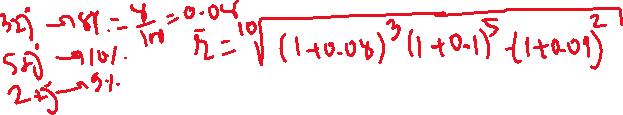 3 → 8% = 8/100 = 0.08
5 → 10%
2 → 9%
x̄ = ¹⁰√(1+0.08)³ (1+0.1)⁵ · (1+0.09)²